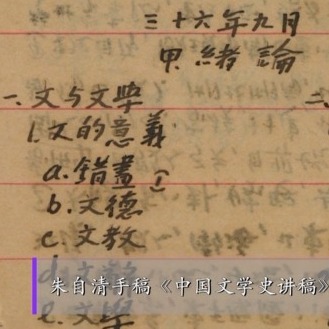 三十六年九月
甲.緒論
一、文与文學
二
1.文的意義
a.錯畫①
b.文德
c.文教
朱自清手稿《中国文学史讲稿》
e.文学